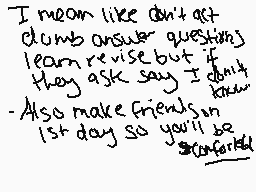 I mean like don't act
dumb answer questions
learn revise but if
they ask say I don't
know
- Also make friends on
1st day so you'll be
comfortabl